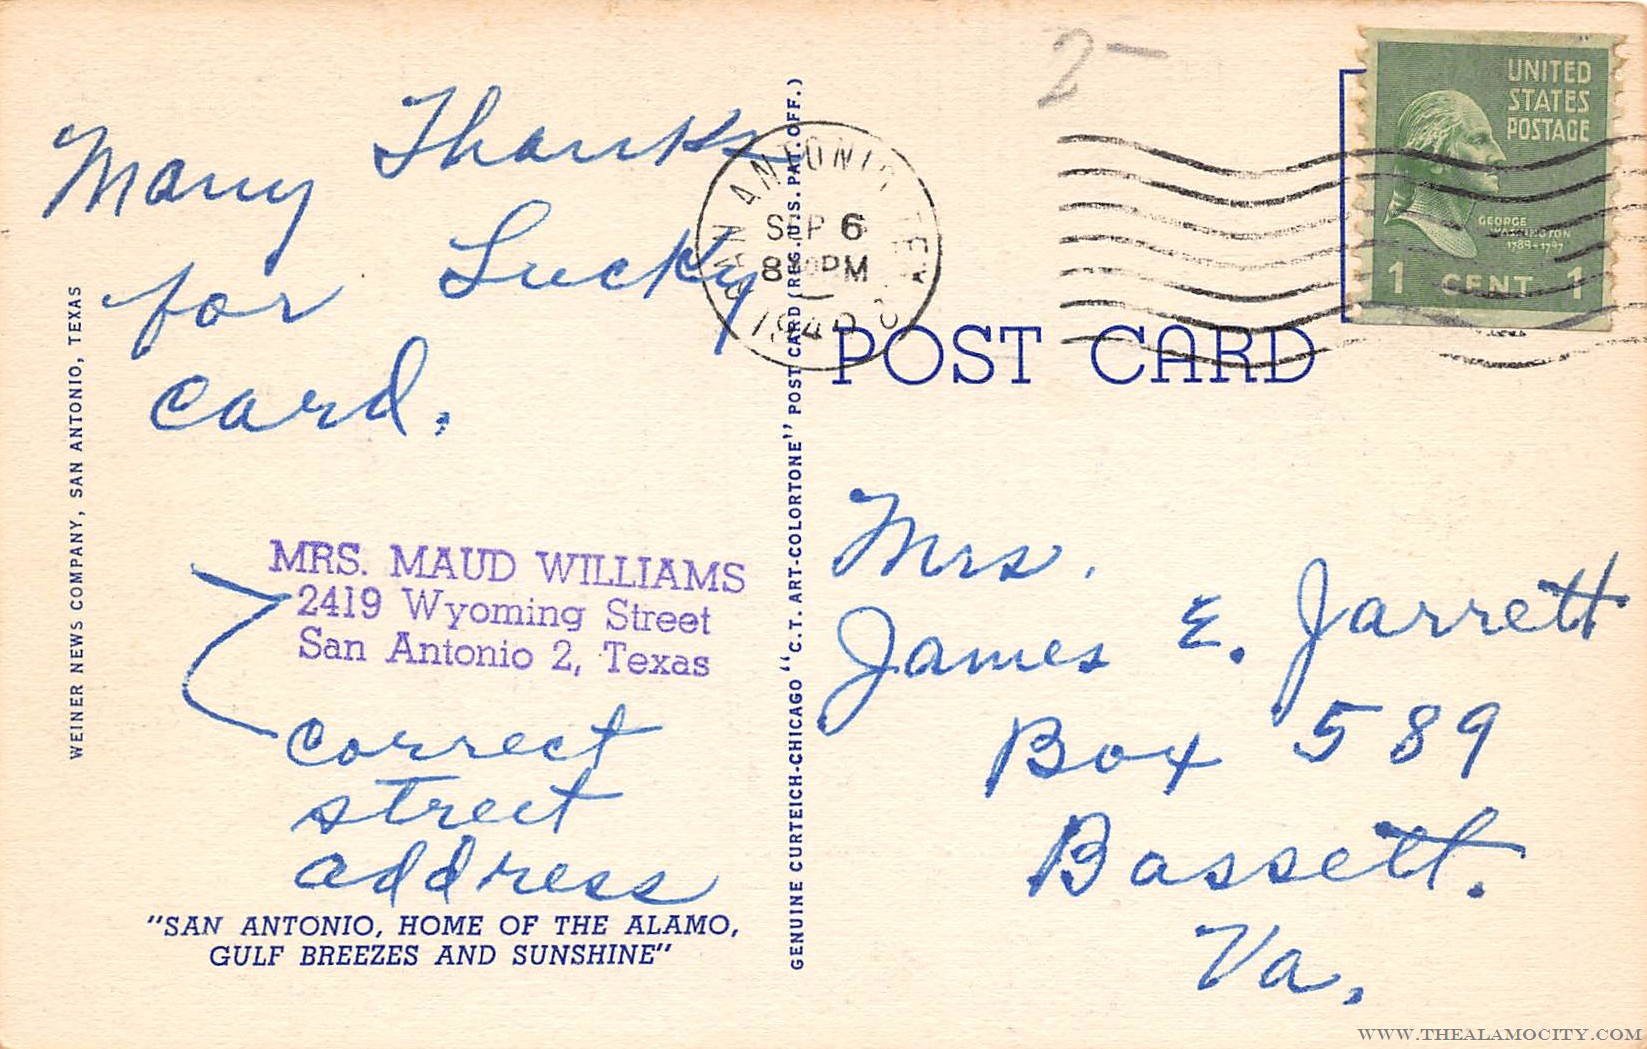 Many Thanks
for Lucky
card.
MRS. MAUD WILLIAMS
2419 Wyoming Street
San Antonio 2, Texas
correct
street
address
"SAN ANTONIO, HOME OF THE ALAMO,
GULF BREEZES AND SUNSHINE"
WEINER NEWS COMPANY, SAN ANTONIO, TEXAS
GENUINE CURTEICH-CHICAGO "C.T. ART-COLORTONE" POST CARD (REG. U.S. PAT. OFF.)
2-
SAN ANTONIO TEX.
SEP 6
PM
UNITED
STATES
POSTAGE
GEORGE
WASHINGTON
1789-1797
1 CENT 1
POST CARD
Mrs.
James E. Jarrett
Box 589
Bassett.
Va.
WWW.THEALAMOCITY.COM